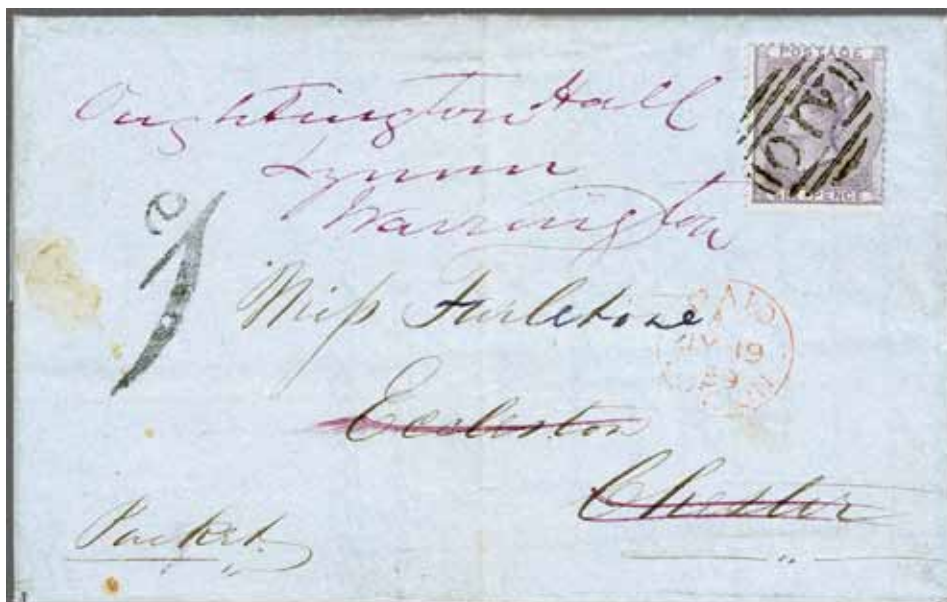 POSTAGE
SIX PENCE
Oughtrington Hall
Lymm
Warrington
Miss Tarletone
PAID
19
59
Eccleston
Chester
Packet